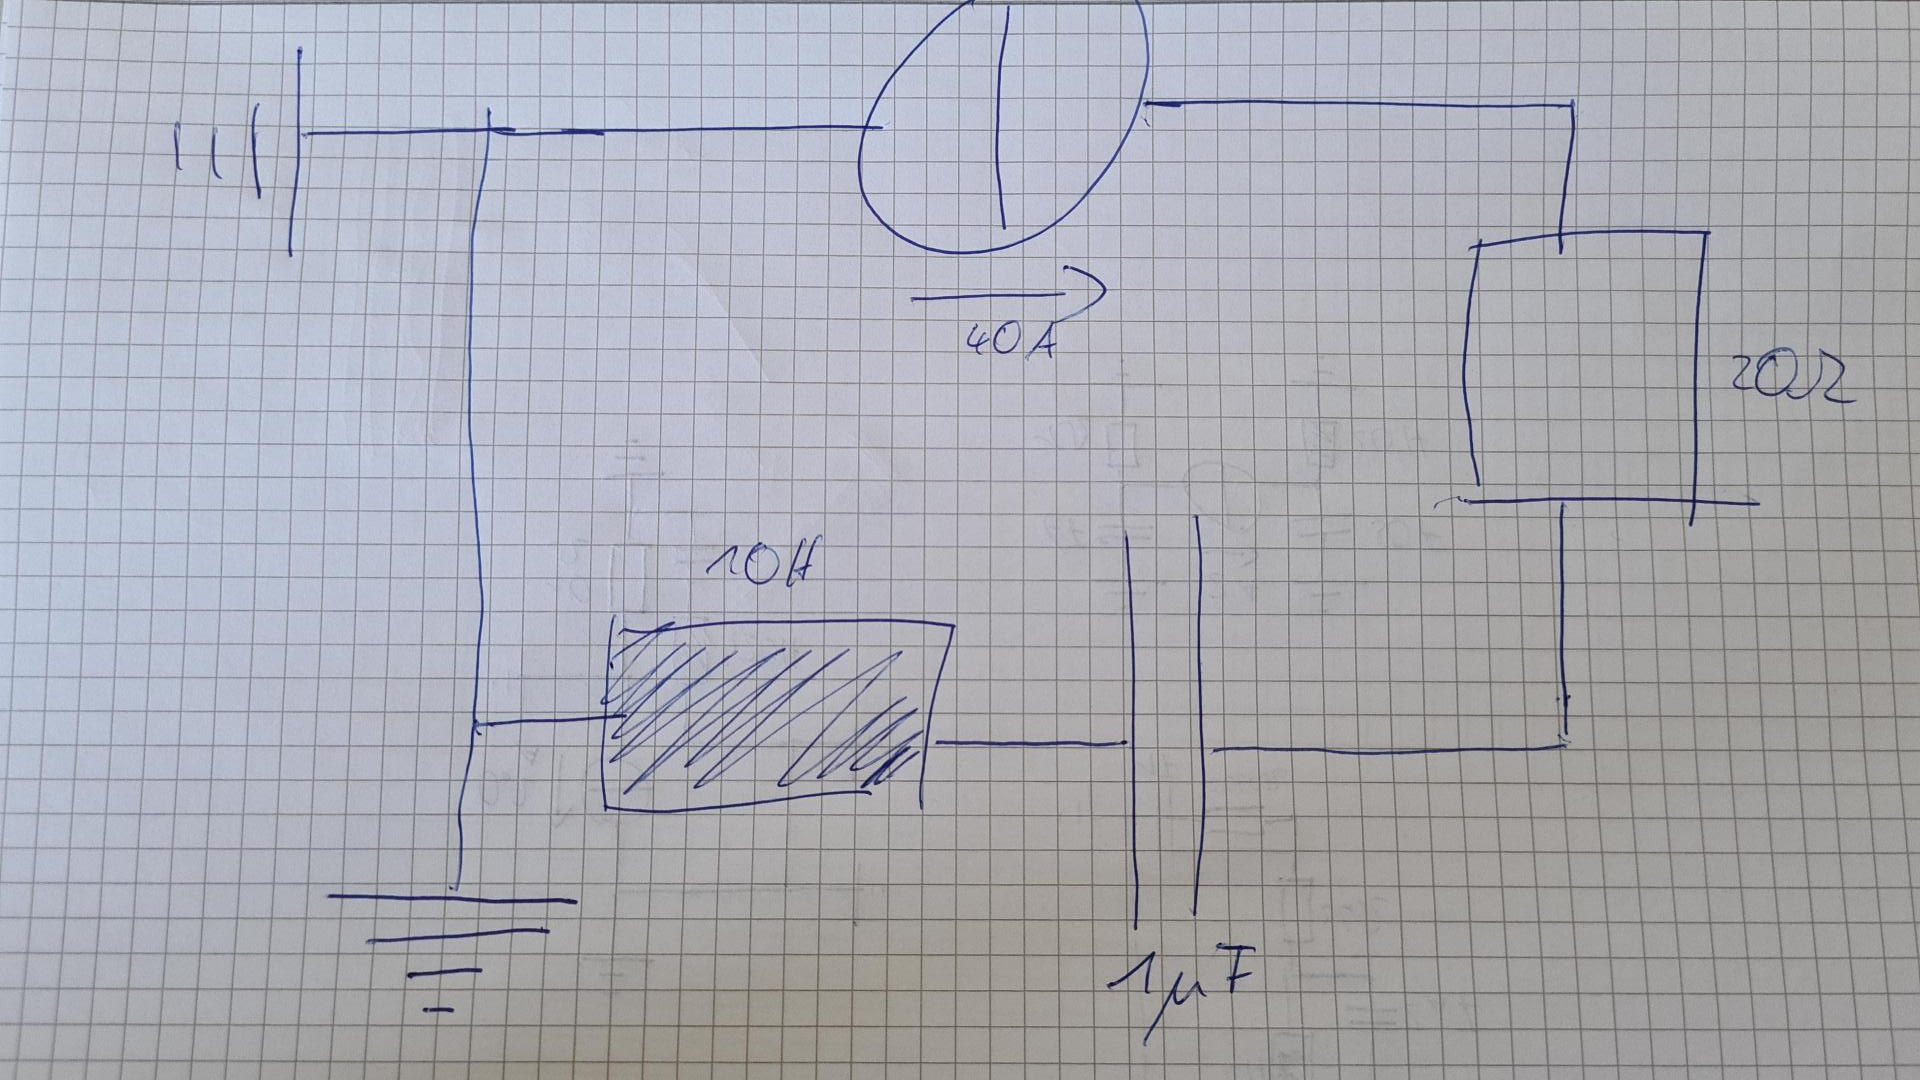 40A
20Ω
10H
1µF